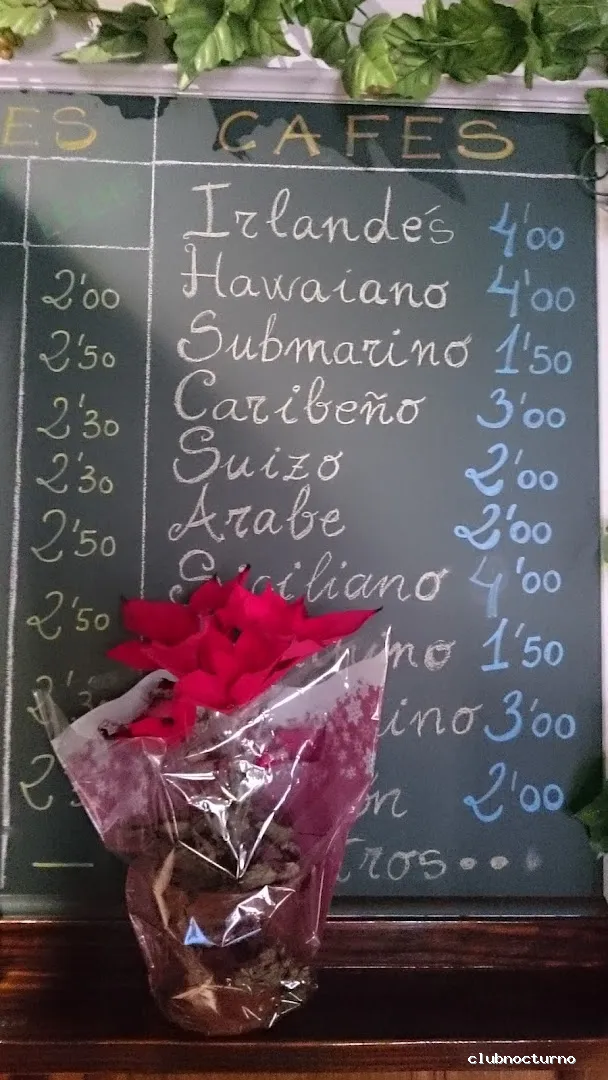 ES CAFES
Irlandés 4'00
2'00 Hawaiano 4'00
2'50 Submarino 1'50
2'30 Caribeño 3'00
2'30 Suizo 2'00
2'50 Arabe 2'00
2'50 Siciliano 4'00
1'50
3'00
2'00
clubnocturno